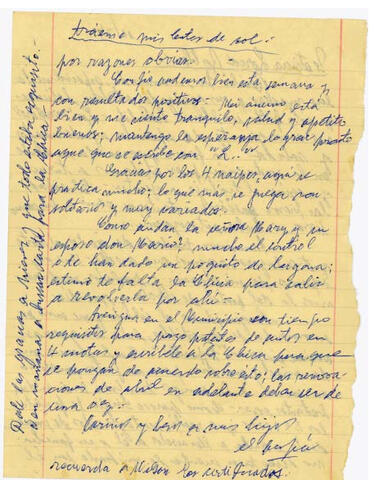 tráeme mis lentes de sol.-
por razones obvias.
Confío andemos bien esta semana y
con resultados positivos.- Mi ánimo está
bien y me siento tranquilo, salud y apetito
buenos; mantengo la esperanza lograr pronto
aquello que se escribe con "L..."
Gracias por los 4 naipes, aquí se
practica mucho; lo que más se juega son
solitarios y muy variados.
Cómo andan la señora Mary y su
esposo don Mario?
le han dado un poquito de
te falta la Chica para salir
a revolverla por ahí.-
Averigua en el Municipio con tiempo
requisitos para pago patentes de autos en
4 cuotas y escribele a la Chica para que
se pongan de acuerdo sobre esto; las renova-
ciones de abril en adelante deben ser de
una vez.-
Cariños y besos a mis hijos
el papá
recuerda a Nelson los certificados.
Dale las gracias a Nieves, que todo estaba exquisito.-